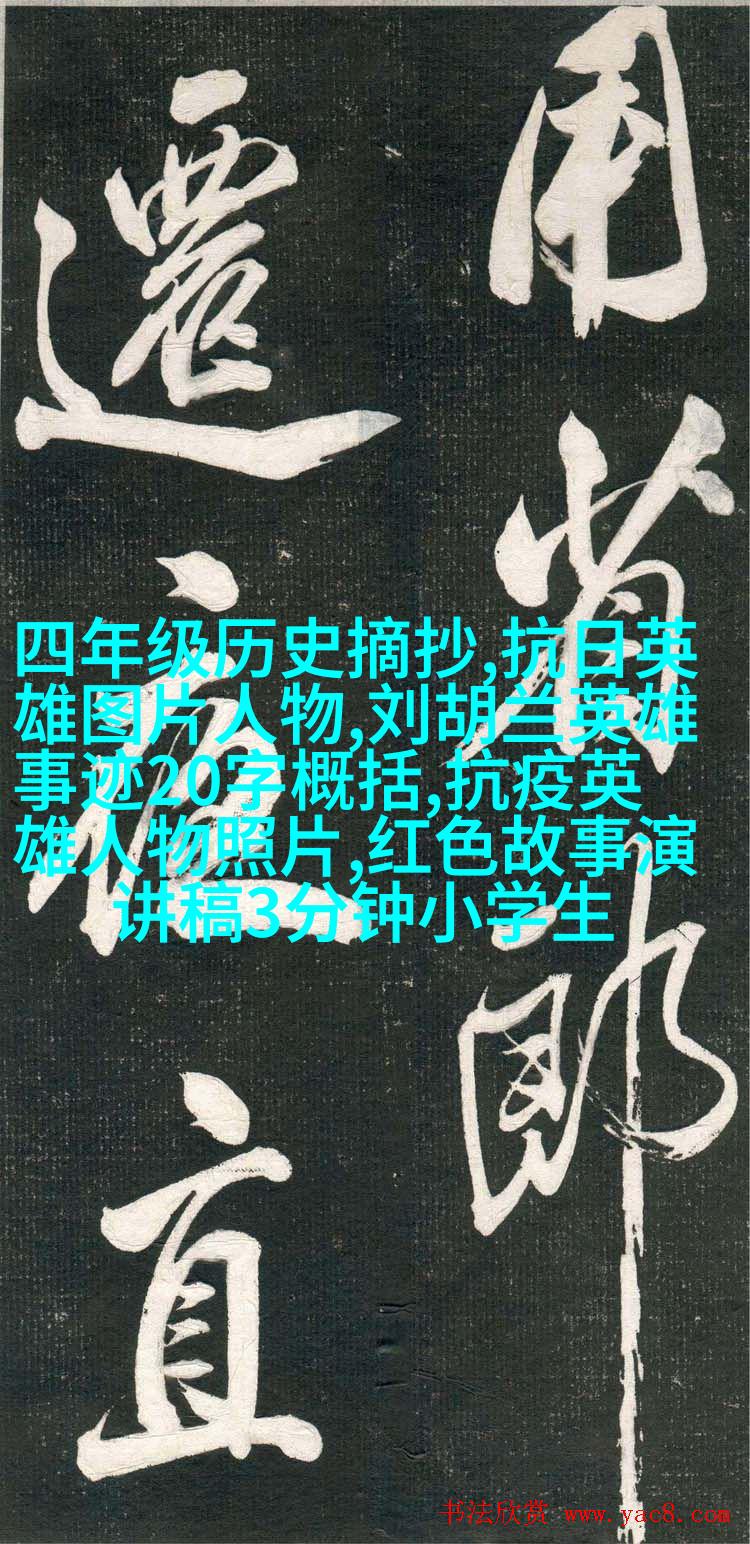 用省郎
遷直
四年级历史摘抄,抗日英
雄图片人物,刘胡兰英雄
事迹20字概括,抗疫英
雄人物照片,红色故事演
讲稿3分钟小学生
书法欣赏 www.yac8.com